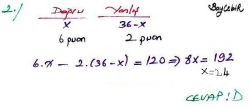 2./ Doğru Yanlış BayCebir
x 36-x
6 puan 2 puan
6.x - 2.(36-x) = 120 ⇒ 8x = 192
x=24
CEVAP: D